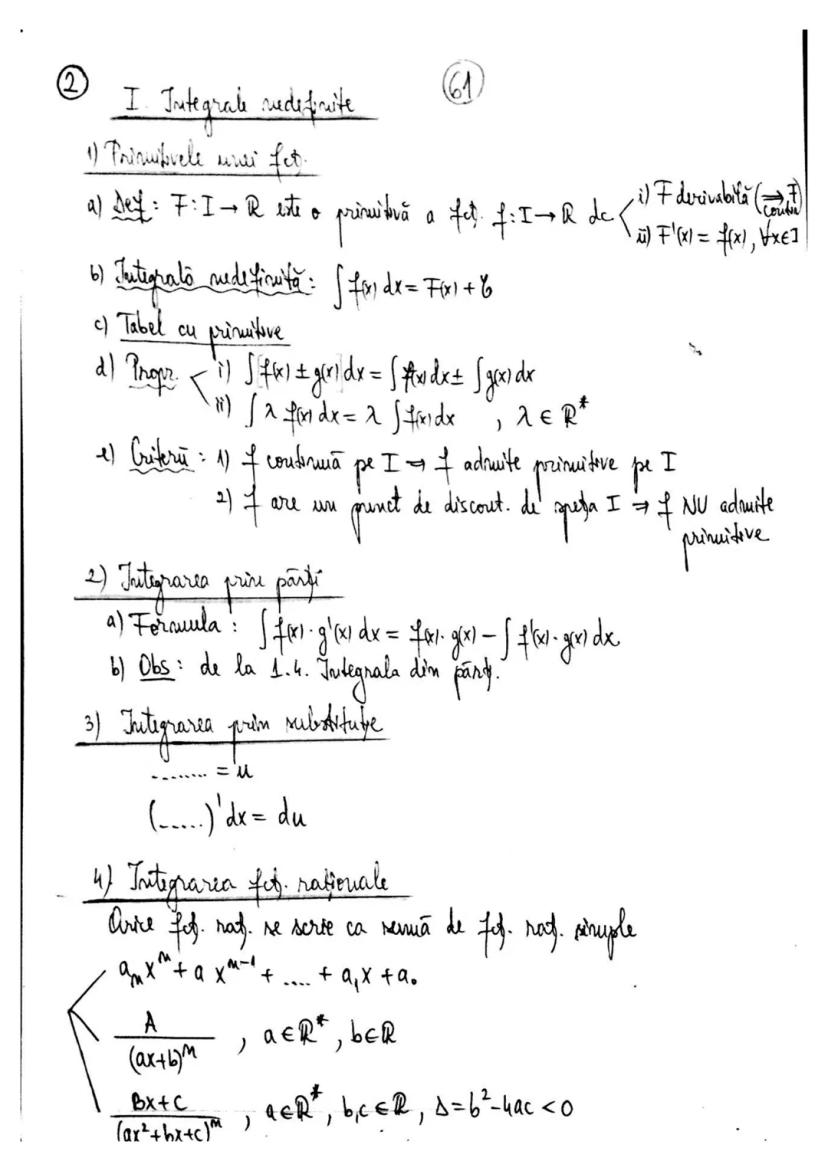 ② 61
I. Integrale nedefinite
1) Primitivele unei fcț.
a) Def: F: I → ℝ este o primitivă a fcț. f: I → ℝ dc i) F derivabilă (⇒ F continuă)
ii) F'(x) = f(x), ∀x∈I
b) Integrală nedefinită: ∫ f(x) dx = F(x) + C
c) Tabel cu primitive
d) Propr. i) ∫ f(x) ± g(x) dx = ∫ f(x) dx ± ∫ g(x) dx
ii) ∫ λ f(x) dx = λ ∫ f(x) dx , λ ∈ ℝ*
e) Criterii: 1) f continuă pe I ⇒ f admite primitive pe I
2) f are un punct de discont. de speța I ⇒ f NU admite
primitive
2) Integrarea prin părți
a) Formula: ∫ f(x)·g'(x) dx = f(x)·g(x) − ∫ f'(x)·g(x) dx
b) Obs: de la 1.4. Integrala din părț.
3) Integrarea prin substituție
........ = u
(.....)' dx = du
4) Integrarea fcț. raționale
Orice fcț. raț. se scrie ca sumă de fcț. raț. simple
aₙxⁿ + a xⁿ⁻¹ + .... + a₁x + a₀
A/(ax+b)ⁿ , a∈ℝ*, b∈ℝ
Bx+C/(ax²+bx+c)ⁿ , a∈ℝ*, b,c∈ℝ, Δ=b²-4ac<0